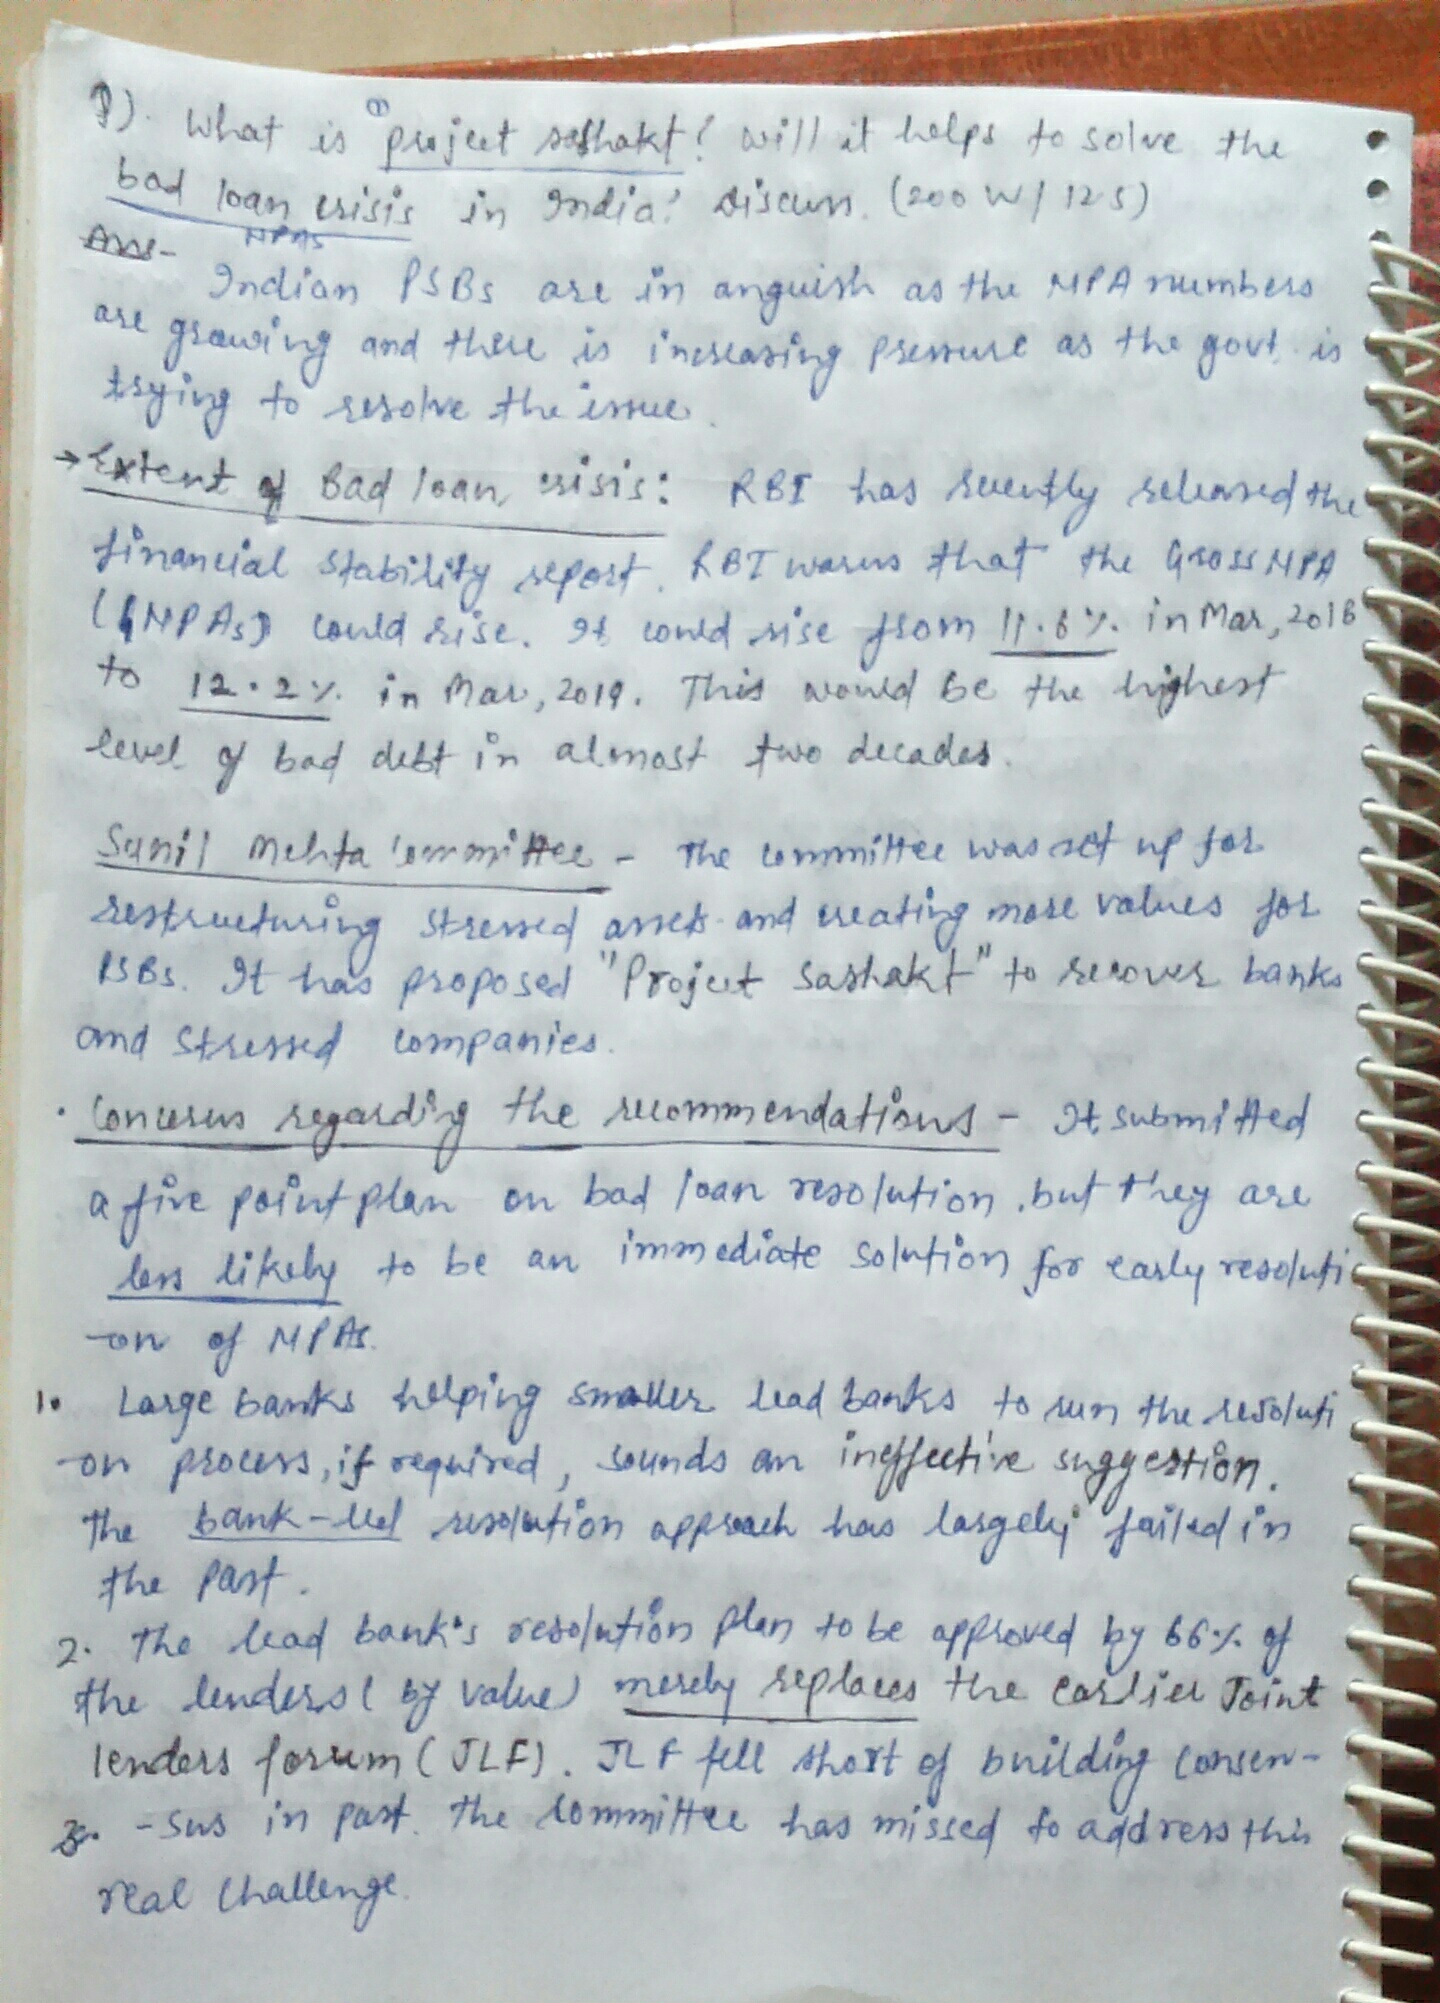 Q). What is ① project sashakt? Will it helps to solve the
bad loan crisis in India? Discuss. (200 W/ 12.5)
NPAs
Ans-
Indian PSBs are in anguish as the NPA numbers
are growing and there is increasing pressure as the govt. is
trying to resolve the issue.
→ Extent of Bad loan crisis: RBI has recently released the
financial stability report. RBI warns that the Gross NPA
(GNPAs) could rise. It could rise from 11.6%. in Mar, 2018
to 12.2%. in Mar, 2019. This would be the highest
level of bad debt in almost two decades.
Sunil Mehta Committee - The committee was set up for
restructuring stressed assets and creating more values for
PSBs. It has proposed "Project Sashakt" to recover banks
and stressed companies.
· Concerns regarding the recommendations - It submitted
a five point plan on bad loan resolution, but they are
less likely to be an immediate solution for early resoluti
-on of NPAs.
1. Large banks helping smaller lead banks to run the resoluti
-on process, if required, sounds an ineffective suggestion.
The bank-led resolution approach has largely failed in
the past.
2. The lead bank's resolution plan to be approved by 66%. of
the lenders (by value) merely replaces the earlier Joint
lenders forum (JLF). JLF fell short of building consen-
3. -sus in past. The committee has missed to address this
real challenge.